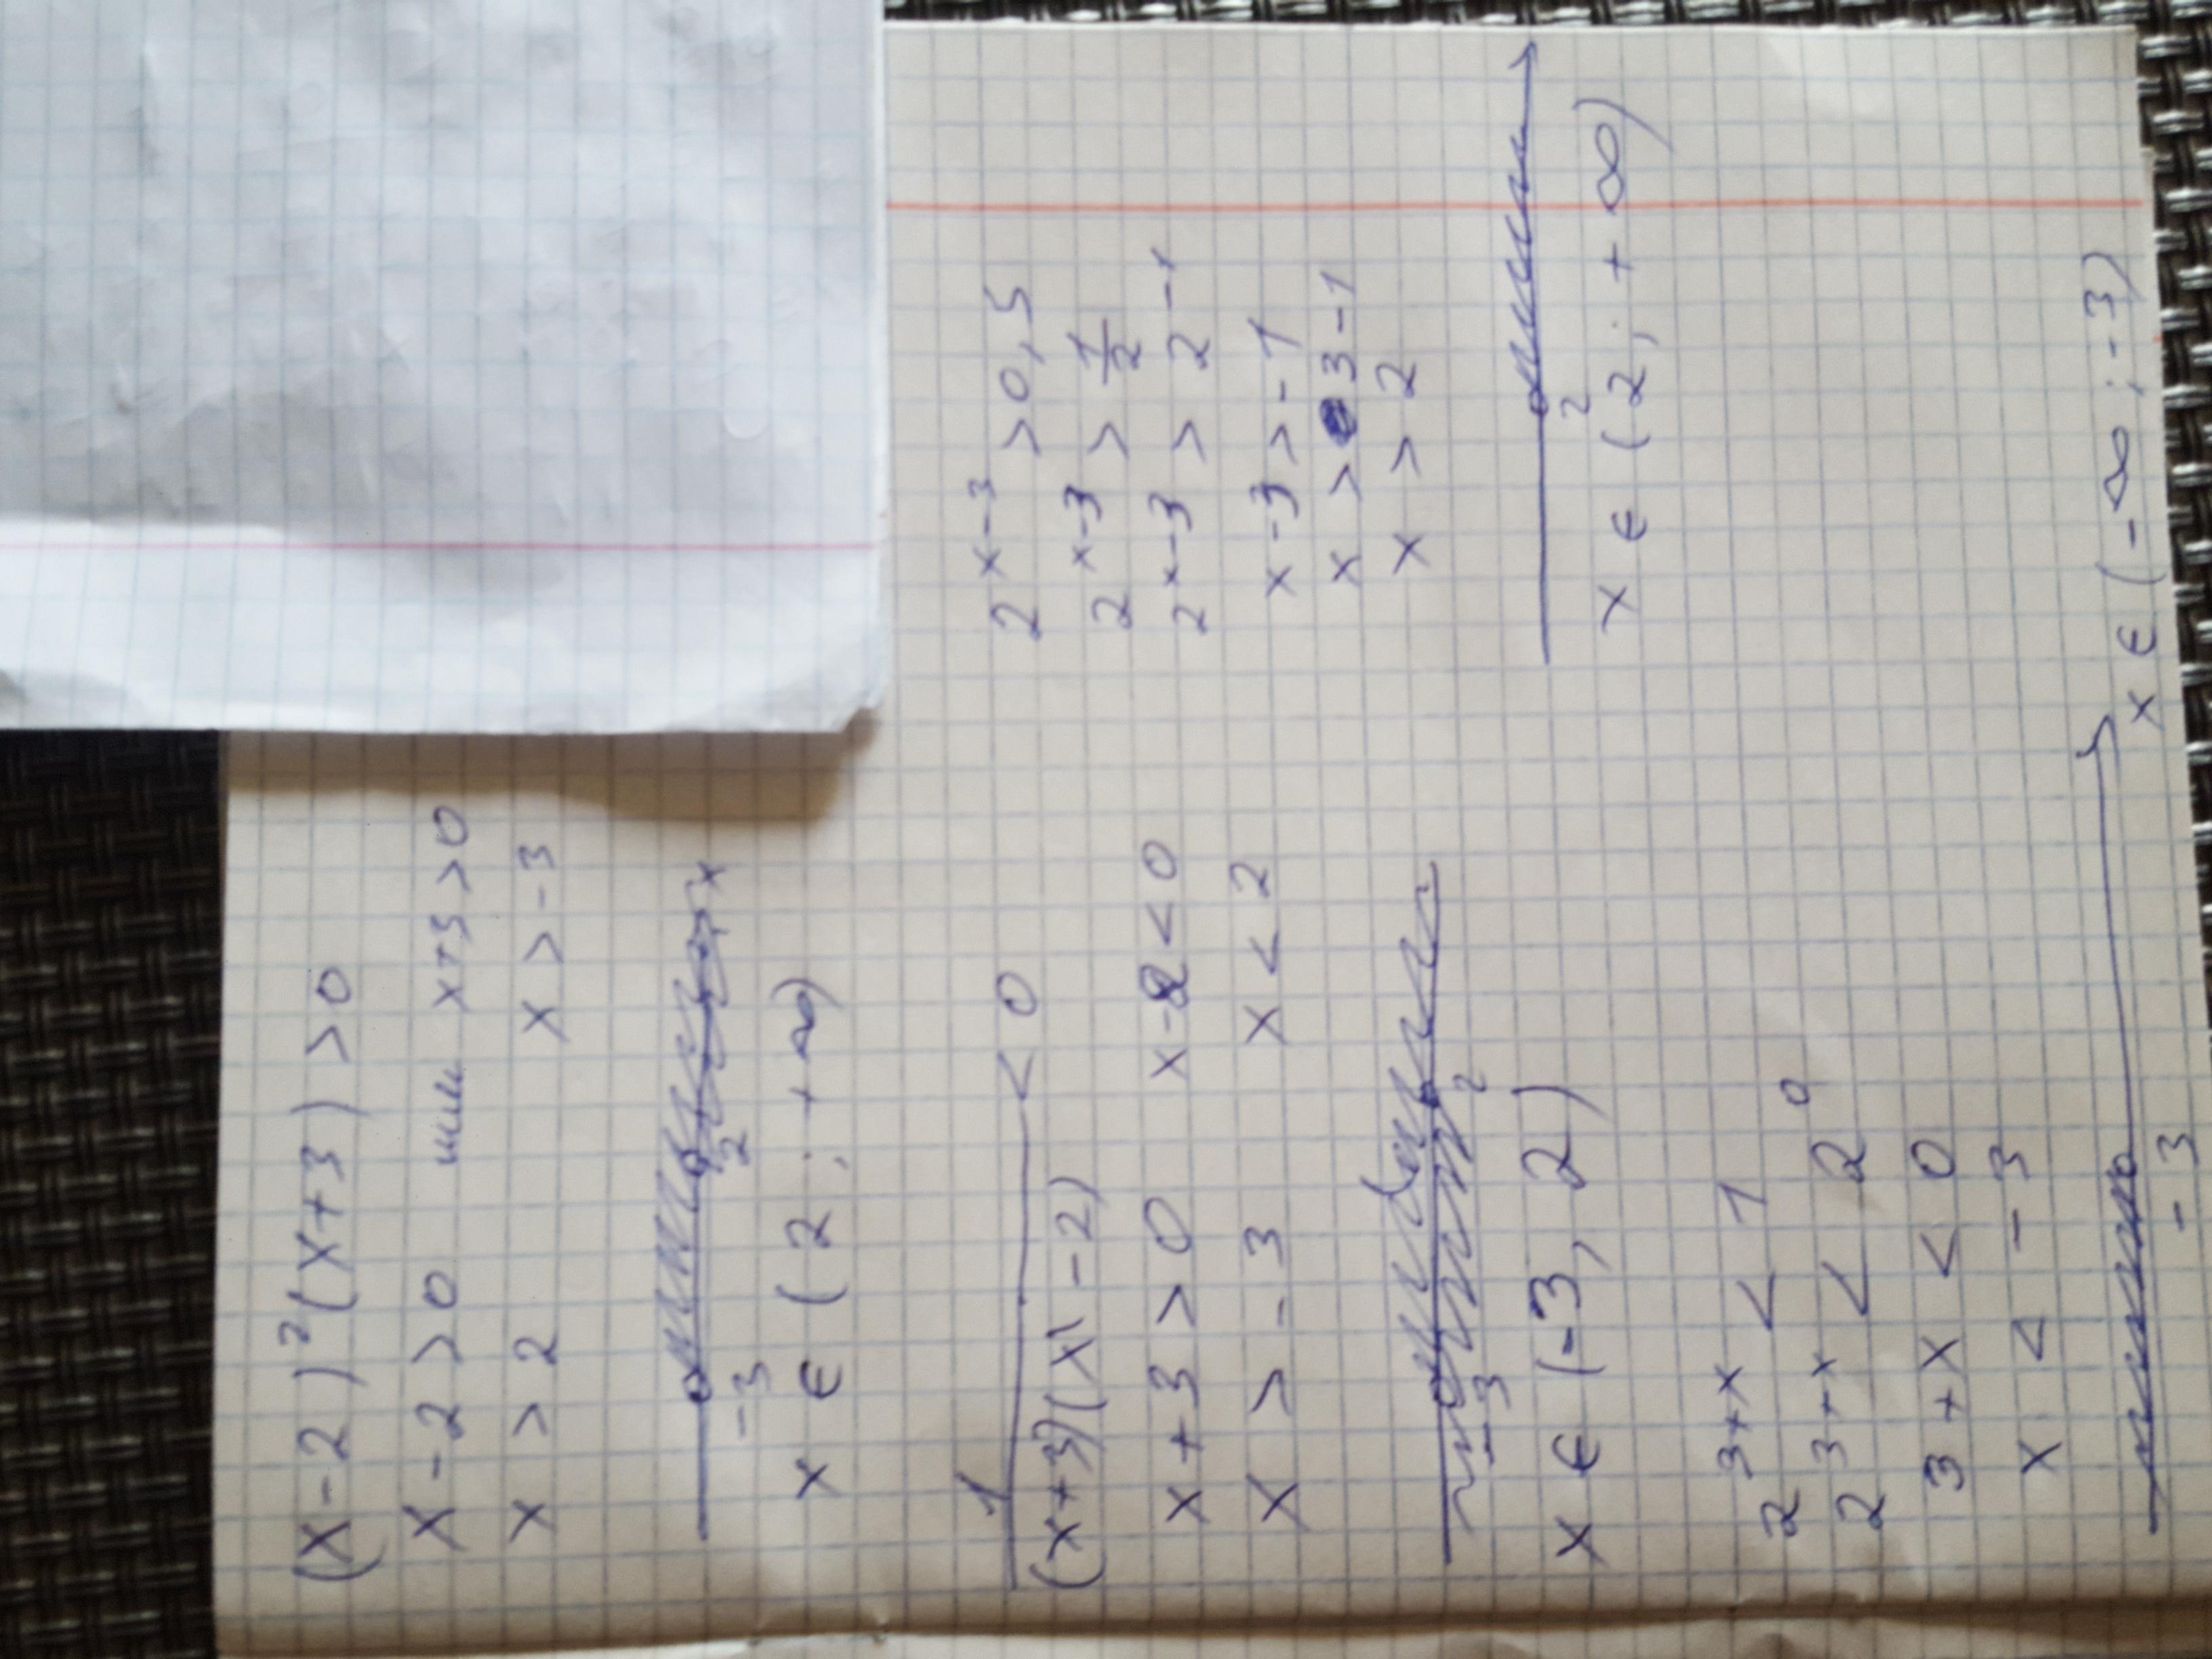 (x-2)²(x+3) > 0
x-2 > 0 или x+3 > 0
x > 2 x > -3
-3 2 x
x ∈ (2; +∞)
1
(x+3)(x-2) < 0
x+3 > 0 x-2 < 0
x > -3 x < 2
-3 2
x ∈ (-3, 2)
2^(3+x) < 1
2^(3+x) < 2^0
3+x < 0
x < -3
-3
x ∈ (-∞; -3)
2^(x-3) > 0,5
2^(x-3) > 1/2
2^(x-3) > 2^(-1)
x-3 > -1
x > 3-1
x > 2
2
x ∈ (2; +∞)